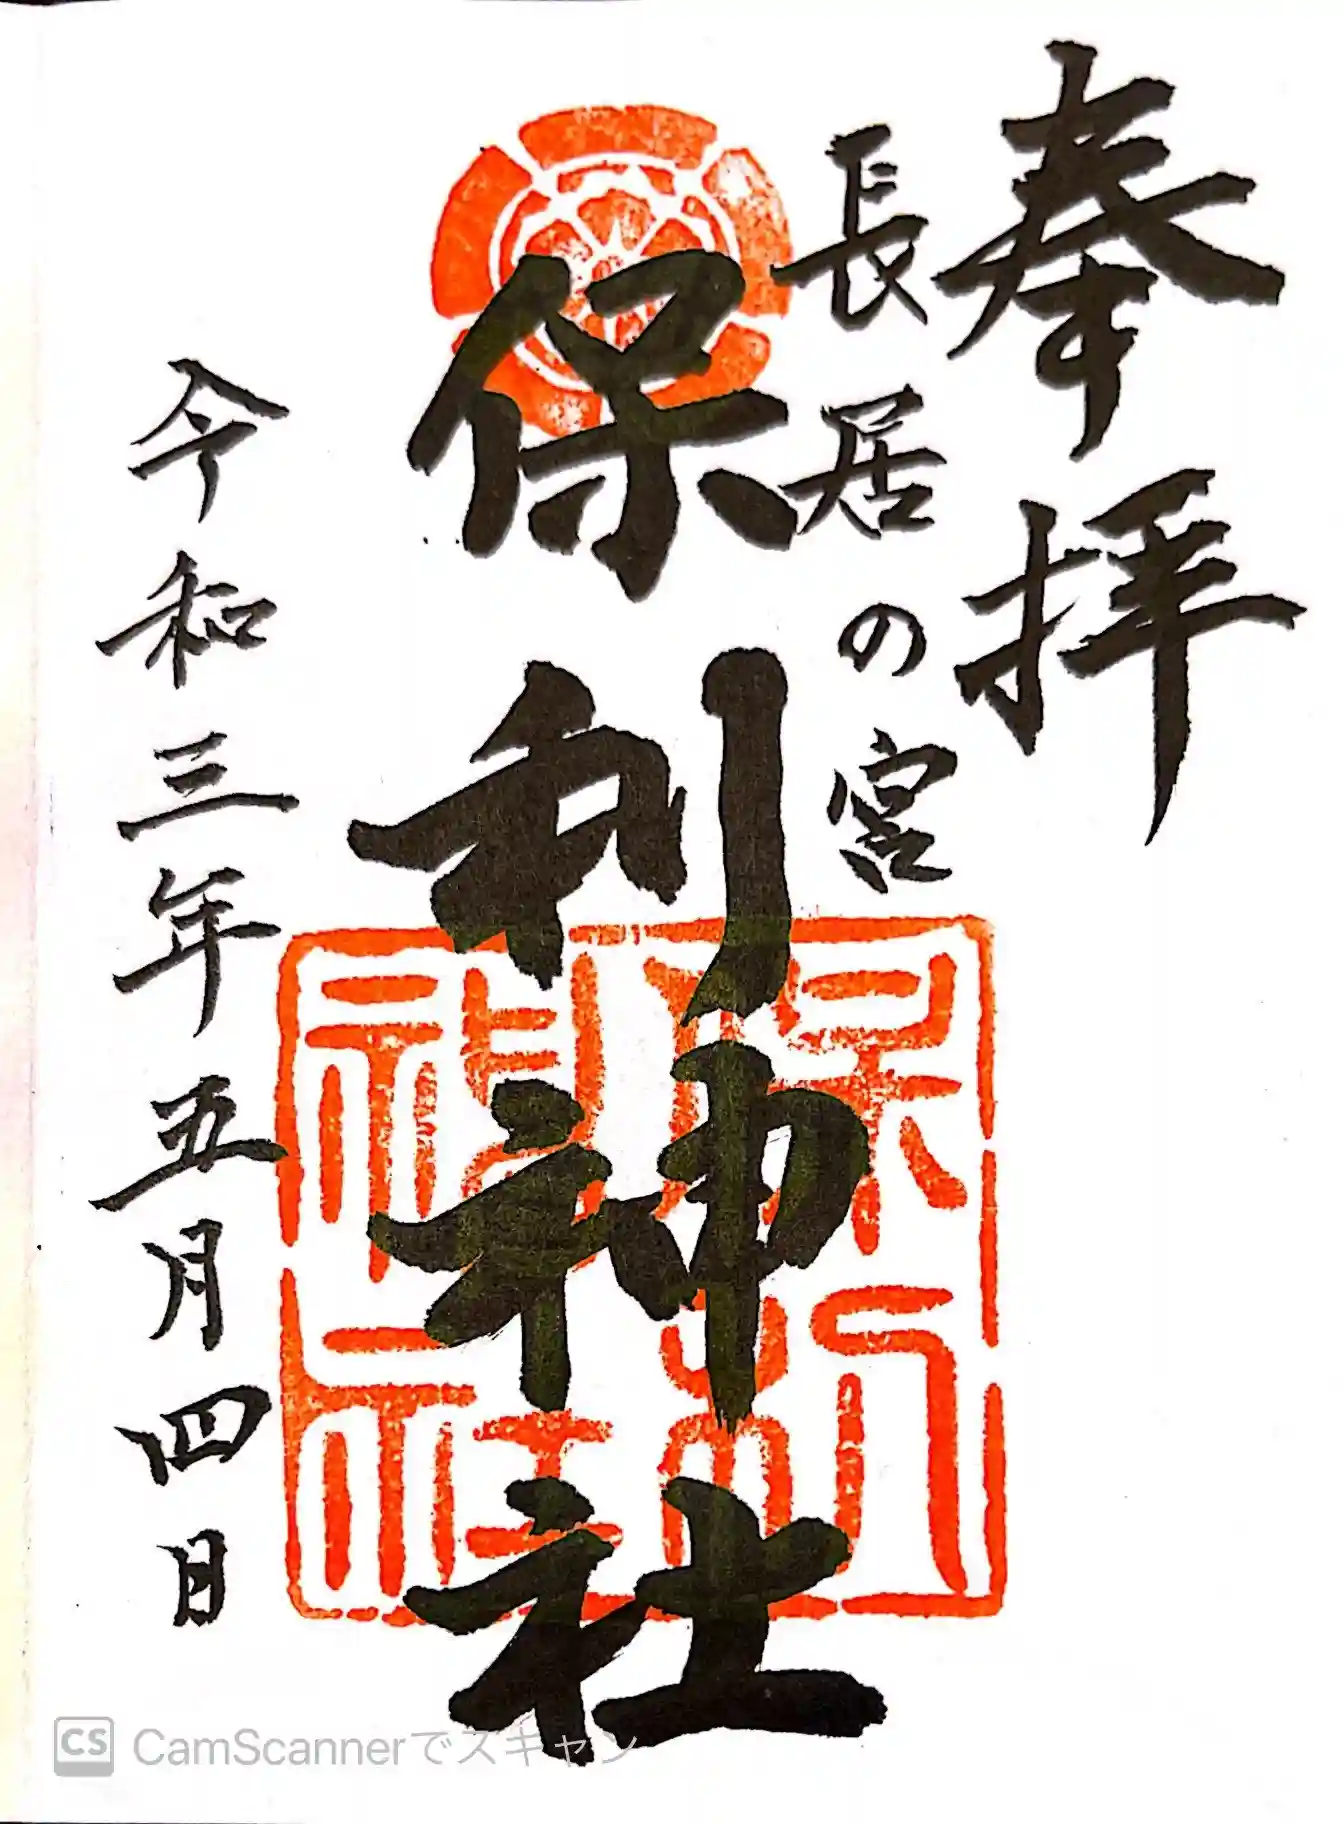 奉拝
長居の宮
保利神社
保利神社
令和三年五月四日
CS CamScannerでスキャン